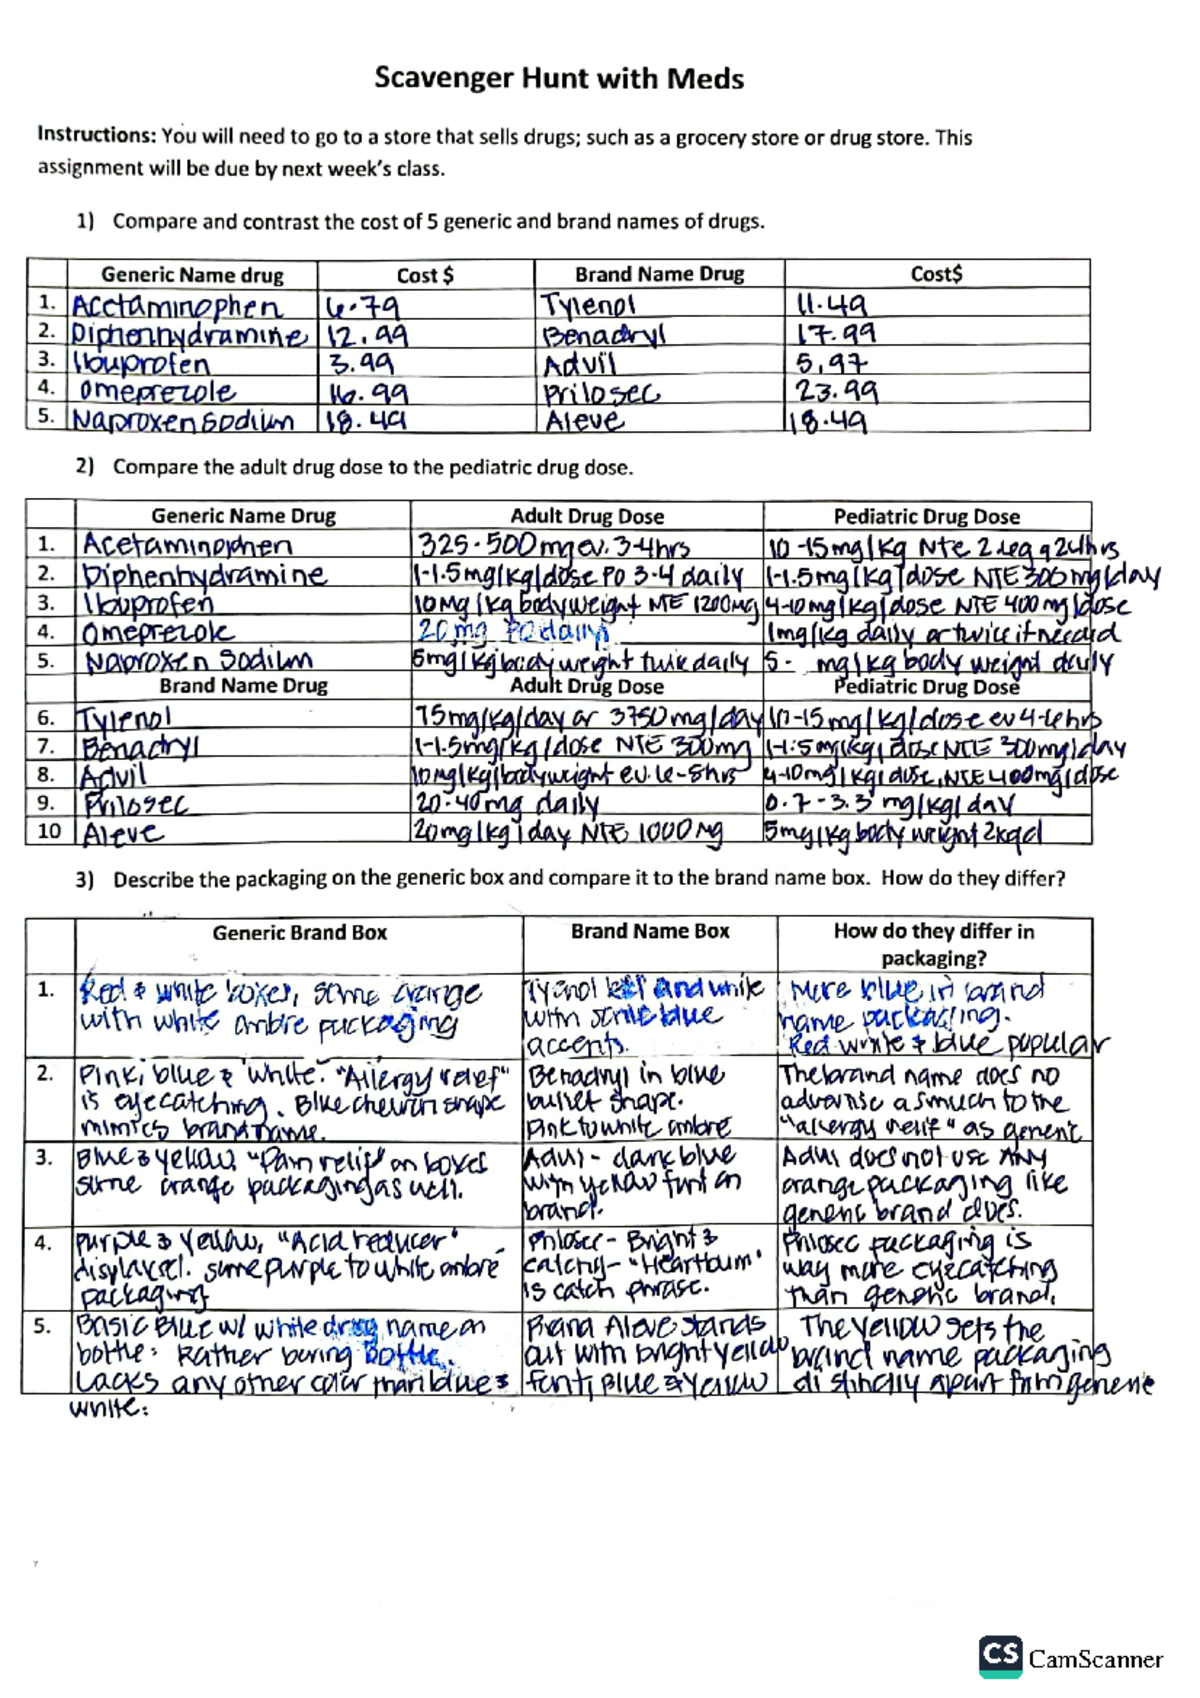 Scavenger Hunt with Meds
Instructions: You will need to go to a store that sells drugs; such as a grocery store or drug store. This
assignment will be due by next week's class.
1) Compare and contrast the cost of 5 generic and brand names of drugs.
Generic Name drug Cost $ Brand Name Drug Cost$
1. Acetaminophen 6.79 Tylenol 11.49
2. Diphenhydramine 12.99 Benadryl 17.99
3. Ibuprofen 3.99 Advil 5.97
4. Omeprezole 16.99 Prilosec 23.99
5. Naproxen Sodium 18.49 Aleve 18.49
2) Compare the adult drug dose to the pediatric drug dose.
Generic Name Drug Adult Drug Dose Pediatric Drug Dose
1. Acetaminophen 325-500mg ev. 3-4hrs 10-15mg/kg Nte q 24hrs
2. Diphenhydramine 1-1.5mg/kg/dose PO 3-4 daily 1-1.5mg/kg/dose NTE 300mg/day
3. Ibuprofen 10mg/kg bodyweight NTE 1200mg 4-10mg/kg/dose NTE 400mg/dose
4. Omeprezole 20mg PO daily 1mg/kg daily or twice if needed
5. Naproxen Sodium 5mg/kg body weight twice daily 5- mg/kg body weight daily
Brand Name Drug Adult Drug Dose Pediatric Drug Dose
6. Tylenol 75mg/kg/day or 3750mg/day 10-15mg/kg/dose ev 4-6hrs
7. Benadryl 1-1.5mg/kg/dose NTE 300mg 1-1.5mg/kg/dose NTE 300mg/day
8. Advil 10mg/kg/bodyweight ev. 6-8hrs 4-10mg/kg/dose, NTE 400mg/dose
9. Prilosec 20-40mg daily 0.7-3.3mg/kg/day
10 Aleve 20mg/kg/day NTE 1000mg 5mg/kg body weight
3) Describe the packaging on the generic box and compare it to the brand name box. How do they differ?
Generic Brand Box Brand Name Box How do they differ in
packaging?
1. Red & white boxes, some orange Tylenol red and white More blue in brand
with white ombre packaging with some blue name packaging.
accents. Red white & blue popular
2. Pink, blue & white. "Allergy relief" Benadryl in blue The brand name does no
is eyecatching. Blue chevron shape bullet shape. advertise as much to the
mimics brand name. Pink to white ombre "allergy relief" as generic
3. Blue & yellow, "Pain relief" on boxes Advil - dark blue Advil does not use ANY
some orange packaging as well. with yellow font on orange packaging like
brand. generic brand does.
4. Purple & Yellow, "Acid reducer" Prilosec - Bright & Prilosec packaging is
displayed. some purple to white ombre catchy - "Heartburn" way more eyecatching
packaging is catch phrase. than generic brand.
5. Basic Blue w/ white drug name on Brand Aleve stands The yellow sets the
bottle. Rather boring bottle. out with bright yellow brand name packaging
Lacks any other color than blue & font, Blue & Yellow distinctly apart from generic
white.
CS CamScanner